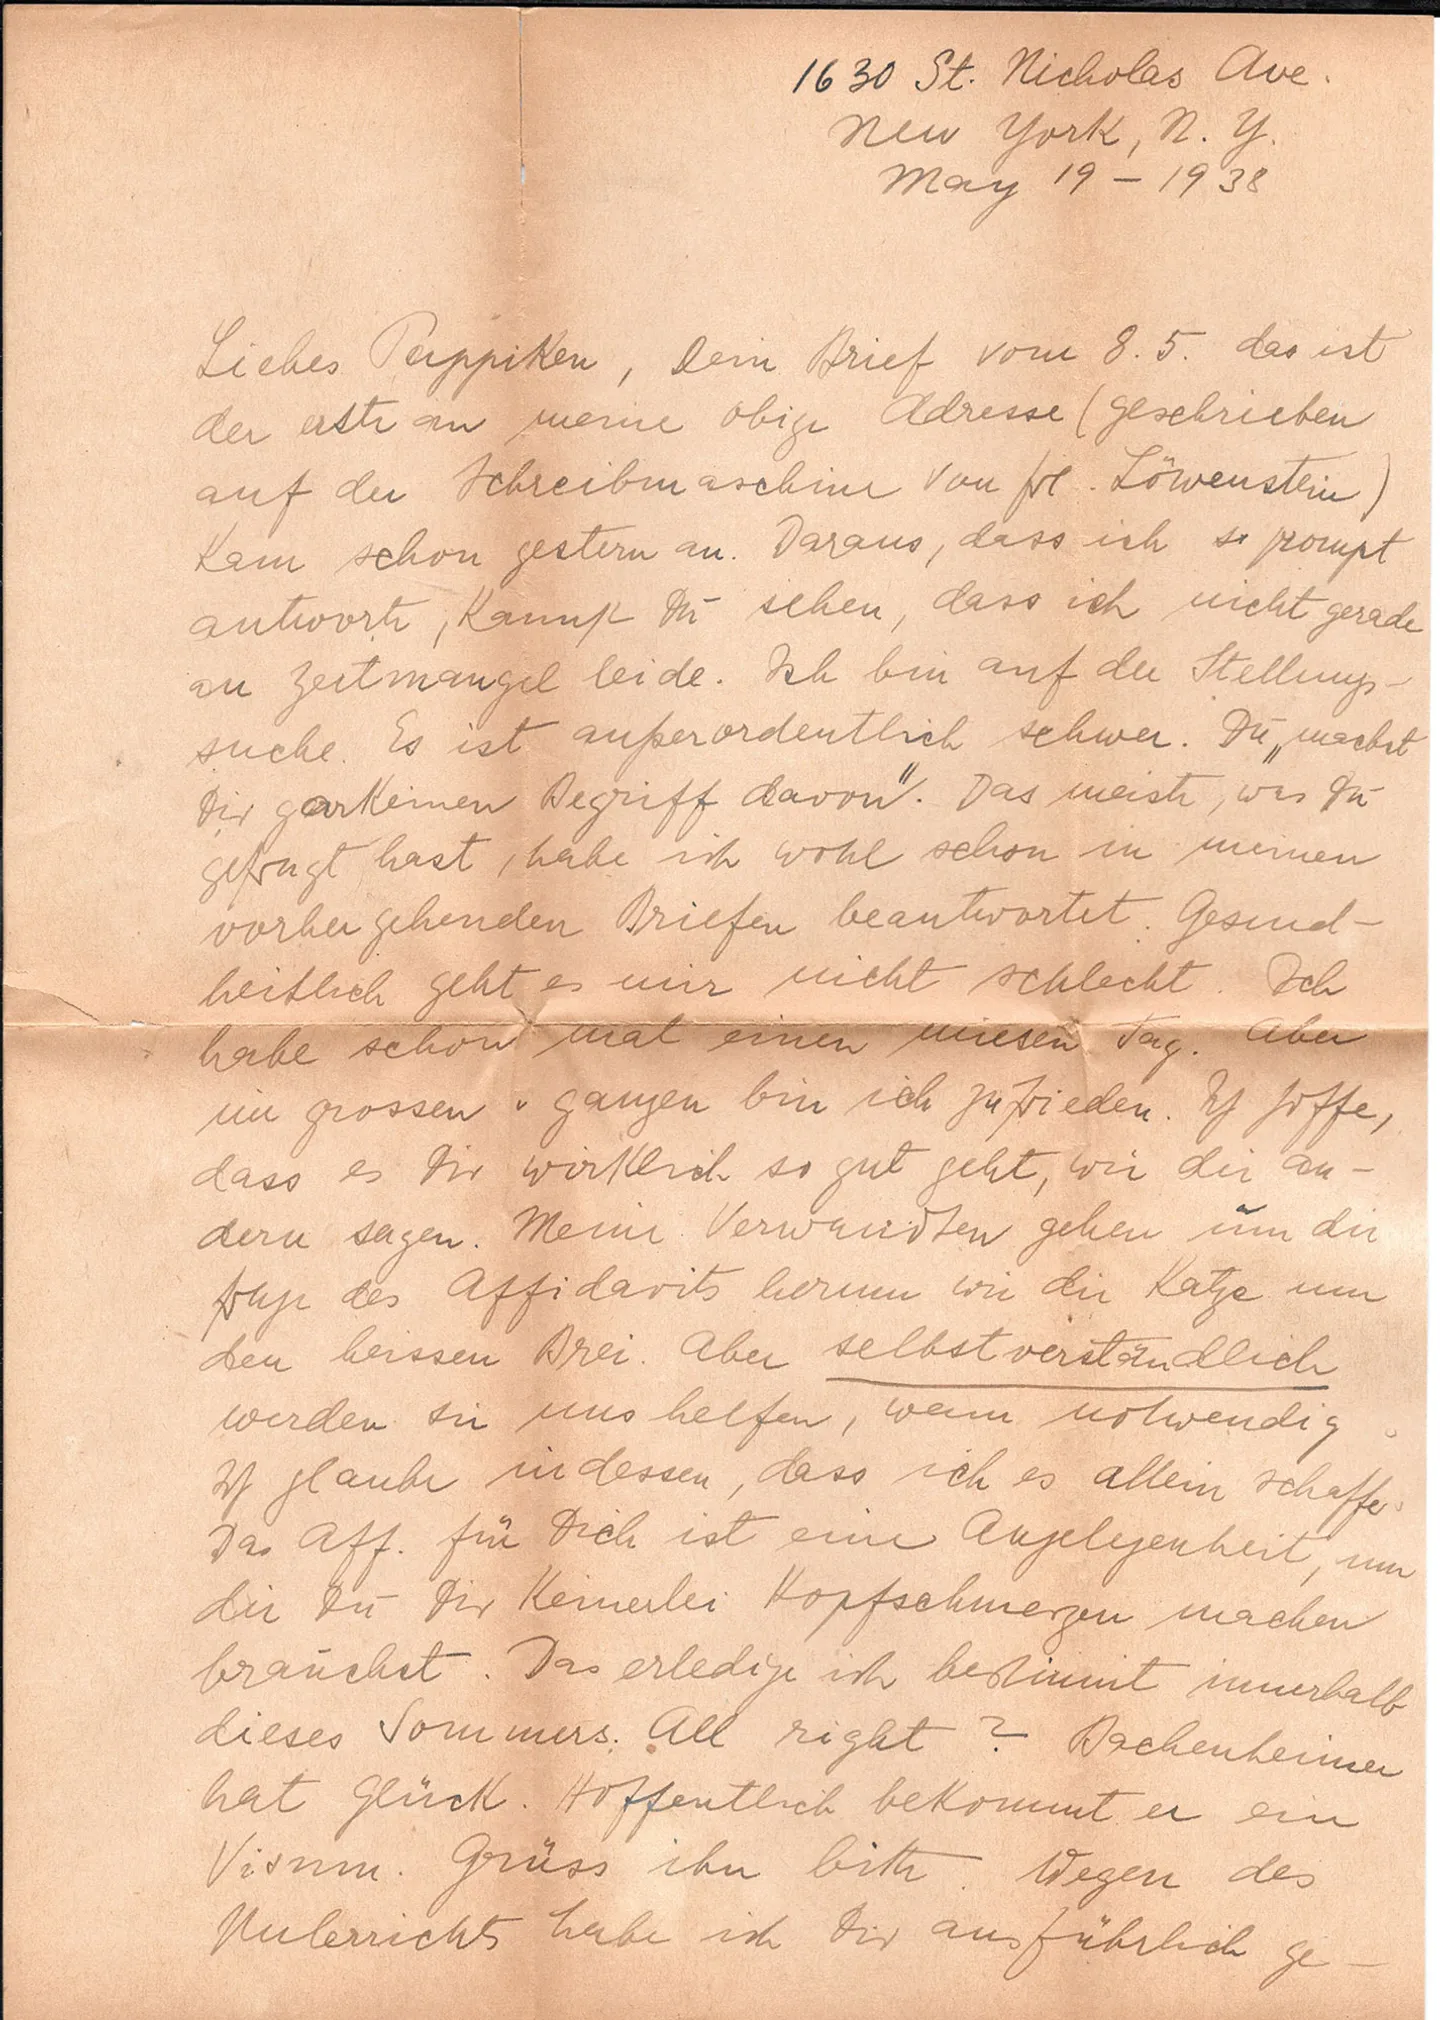 1630 St. Nicholas Ave.
New York, N. Y.
May 19 – 1938
Liebes Puppiken, Dein Brief vom 8. 5. das ist
der erste an meine obige Adresse (geschrieben
auf der Schreibmaschine von frl. Löwenstein)
kam schon gestern an. Daraus, dass ich so prompt
antworte, kannst Du sehen, dass ich nicht gerade
an Zeitmangel leide. Ich bin auf der Stellungs-
suche. Es ist außerordentlich schwer. Du „machst
Dir garkeinen Begriff davon". Das meiste, was Du
gefragt hast, habe ich wohl schon in meinen
vorhergehenden Briefen beantwortet. Gesund-
heitlich geht es mir nicht schlecht. Ich
habe schon mal einen miesen Tag. Aber
im grossen u ganzen bin ich zufrieden. Ich hoffe,
dass es Dir wirklich so gut geht, wie die an-
dern sagen. Meine Verwandten gehen um die
Frage des Affidavits herum wie die Katze um
den heissen Brei. Aber selbstverständlich
werden sie uns helfen, wenn notwendig.
Ich glaube indessen, dass ich es allein schaffe.
Das Aff. für Dich ist eine Angelegenheit, um
die Du Dir keinerlei Kopfschmerzen machen
brauchst. Das erledige ich bestimmt innerhalb
dieses Sommers. All right? Bachenheimer
hat Glück. Hoffentlich bekommt er ein
Visum. Grüss ihn bitte. Wegen des
Unterrichts habe ich Dir ausführlich ge-